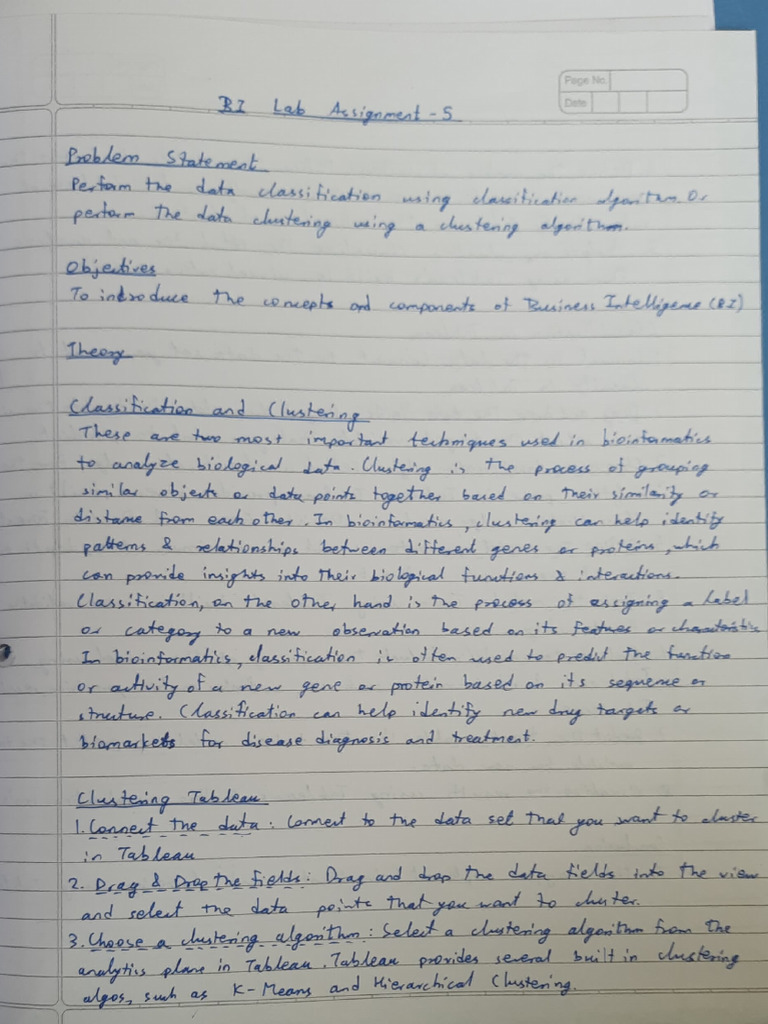 Page No.
Date
BI Lab Assignment - 5
Problem Statement
Perform the data classification using classification algorithm. Or
perform the data clustering using a clustering algorithm.
Objectives
To introduce the concepts and components of Business Intelligence (BI)
Theory
Classification and Clustering
These are two most important techniques used in bioinformatics
to analyze biological data. Clustering is the process of grouping
similar objects or data points together based on their similarity or
distance from each other. In bioinformatics, clustering can help identify
patterns & relationships between different genes or proteins, which
can provide insights into their biological functions & interactions.
Classification, on the other hand is the process of assigning a label
or category to a new observation based on its features or characteristics
In bioinformatics, classification is often used to predict the function
or activity of a new gene or protein based on its sequence or
structure. Classification can help identify new drug targets or
biomarkets for disease diagnosis and treatment.
Clustering Tableau
1. Connect the data : Connect to the data set that you want to cluster
in Tableau
2. Drag & Drop the fields : Drag and drop the data fields into the view
and select the data points that you want to cluster.
3. Choose a clustering algorithm : Select a clustering algorithm from the
analytics plane in Tableau. Tableau provides several built in clustering
algos, such as K-Means and Hierarchical Clustering.